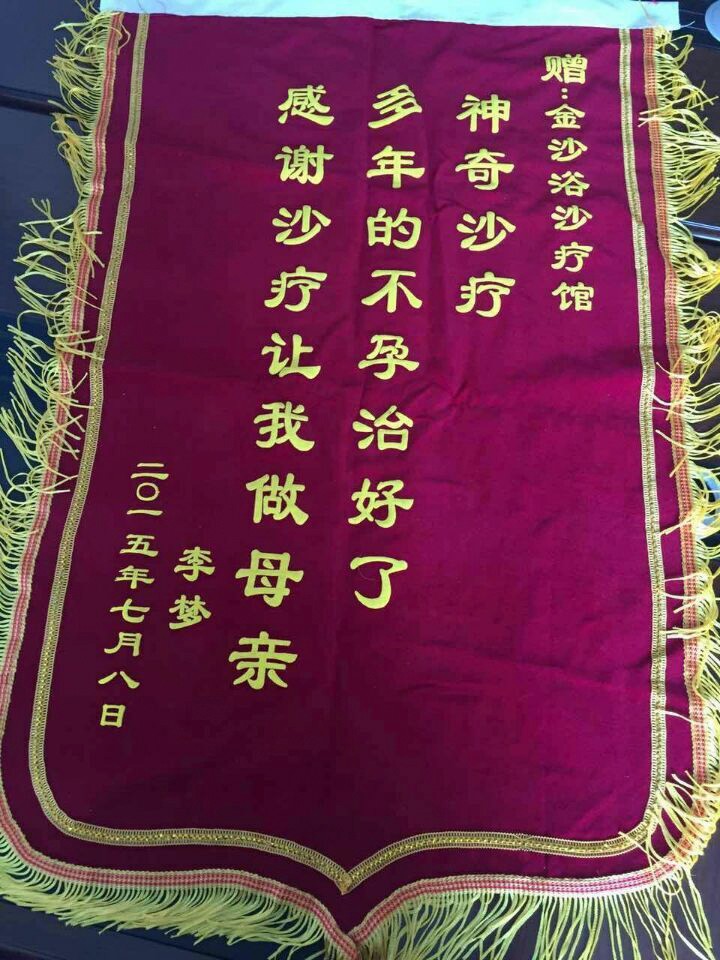 赠:金沙浴沙疗馆
神奇沙疗
多年的不孕治好了
感谢沙疗让我做母亲
李梦
二〇一五年七月八日